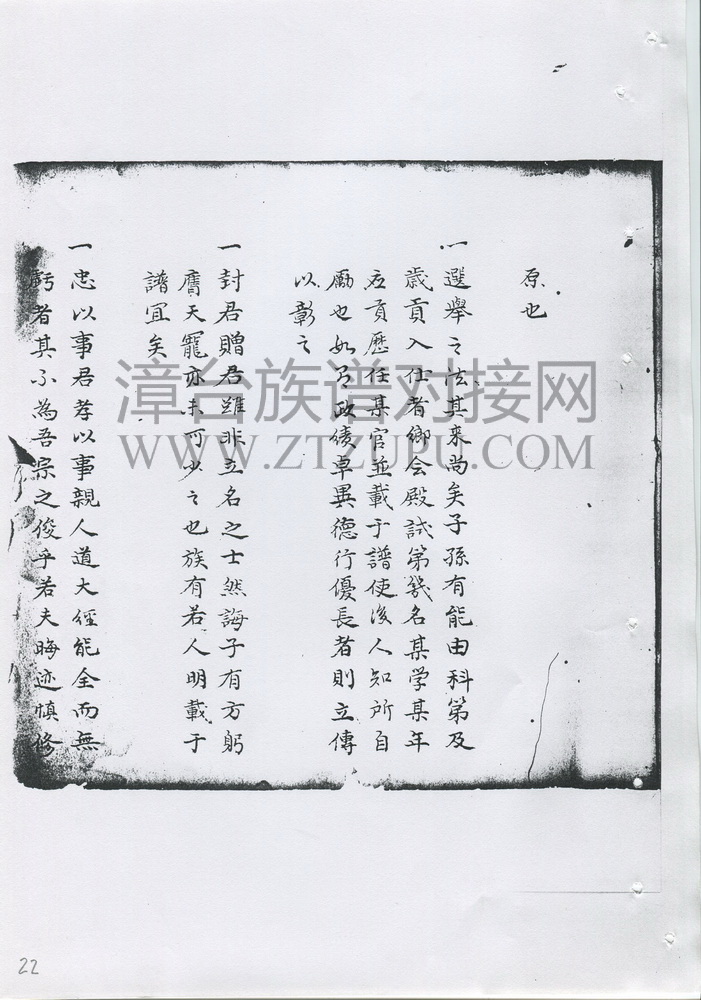 原也
一選舉之法其来尚矣子孫有能由科第及
歲貢入仕者鄉会殿試第幾名某学某年
応貢歷任某官並載于譜使後人知所自
勵也如有政績卓異德行優長者則立傳
以彰之
一封君贈君雖非立名之士然誨子有方躬
膺天寵亦未可少之也族有若人明載于
譜宜矣
一忠以事君孝以事親人道大經能全而無
虧者其不為吾宗之俊乎若夫晦迹慎修
漳台族谱对接网
WWW.ZTZUPU.COM
22